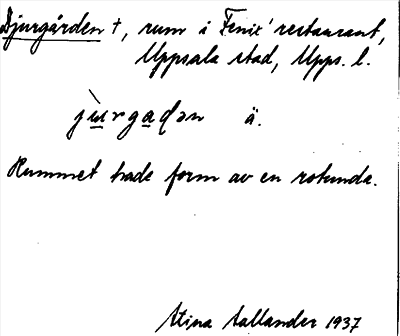 Djurgården †, rum i Fenix' restaurant,
Uppsala stad, Upps. l.
jùrgaḍən ä.
Rummet hade form av en rotunda.
Stina Hallander 1937